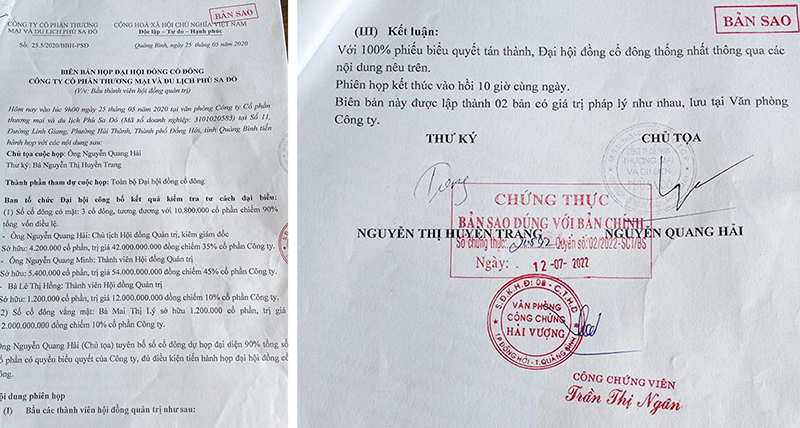 BẢN SAO
CÔNG TY CỔ PHẦN THƯƠNG
MẠI VÀ DU LỊCH PHÚ SA ĐÔ
Số: 25.5/2020/BBH-PSD
CỘNG HOÀ XÃ HỘI CHỦ NGHĨA VIỆT NAM
Độc lập - Tự do - Hạnh phúc
Quảng Bình, ngày 25 tháng 05 năm 2020
BIÊN BẢN HỌP ĐẠI HỘI ĐỒNG CỔ ĐÔNG
CÔNG TY CỔ PHẦN THƯƠNG MẠI VÀ DU LỊCH PHÙ SA ĐỎ
(V/v: Bầu thành viên hội đồng quản trị)
Hôm nay vào lúc 9h00 ngày 25 tháng 05 năm 2020 tại văn phòng Công ty Cổ phần
thương mại và du lịch Phù Sa Đỏ (Mã số doanh nghiệp: 3101020583) tại Số 11,
Đường Linh Giang, Phường Hải Thành, Thành phố Đồng Hới, tỉnh Quảng Bình tiến
hành họp với các nội dung sau:
Chủ tọa cuộc họp: Ông Nguyễn Quang Hải
Thư ký: Bà Nguyễn Thị Huyền Trang
Thành phần tham dự cuộc họp: Toàn bộ Đại hội đồng cổ đông.
Ban tổ chức Đại hội công bố kết quả kiểm tra tư cách đại biểu:
(1) Số cổ đông có mặt: 3 cổ đông, tương đương với 10.800.000 cổ phần chiếm 90%
tổng vốn điều lệ.
- Ông Nguyễn Quang Hải: Chủ tịch Hội đồng Quản trị, kiêm giám đốc
Sở hữu: 4.200.000 cổ phần, trị giá 42.000.000.000 đồng chiếm 35% cổ phần Công ty.
- Ông Nguyễn Quang Minh: Thành viên Hội đồng Quản trị
Sở hữu: 5.400.000 cổ phần, trị giá 54.000.000.000 đồng chiếm 45% cổ phần Công ty.
- Bà Lê Thị Hồng: Thành viên Hội đồng Quản trị
Sở hữu: 1.200.000 cổ phần, trị giá 12.000.000.000 đồng chiếm 10% cổ phần Công ty.
2) Số cổ đông vắng mặt: Bà Mai Thị Lý sở hữu 1.200.000 cổ phần, trị giá
2.000.000.000 đồng chiếm 10% cổ phần Công ty.
Ông Nguyễn Quang Hải (Chủ tọa) tuyên bố số cổ đông dự họp đại diện 90% tổng số
ổ phần có quyền biểu quyết của Công ty, đủ điều kiện tiến hành họp đại hội đồng cổ
ông.
ội dung phiên họp
(I) Bầu các thành viên hội đồng quản trị như sau:
BẢN SAO
(III) Kết luận:
Với 100% phiếu biểu quyết tán thành, Đại hội đồng cổ đông thống nhất thông qua các
nội dung nêu trên.
Phiên họp kết thúc vào hồi 10 giờ cùng ngày.
Biên bản này được lập thành 02 bản có giá trị pháp lý như nhau, lưu tại Văn phòng
Công ty.
THƯ KÝ
CHỦ TỌA
CHỨNG THỰC
BẢN SAO ĐÚNG VỚI BẢN CHÍNH
NGUYỄN THỊ HUYỀN TRANG
NGUYỄN QUANG HẢI
Số chứng thực: Quyển số: 02/2022-SCT/BS
Ngày: 12-07-2022
S.Đ.K.H.Đ: 08 - C.T.H.D
VĂN PHÒNG
CÔNG CHỨNG
HẢI VƯỢNG
TP ĐỒNG HỚI - T. QUẢNG BÌNH
CÔNG CHỨNG VIÊN
Trần Thị Ngân